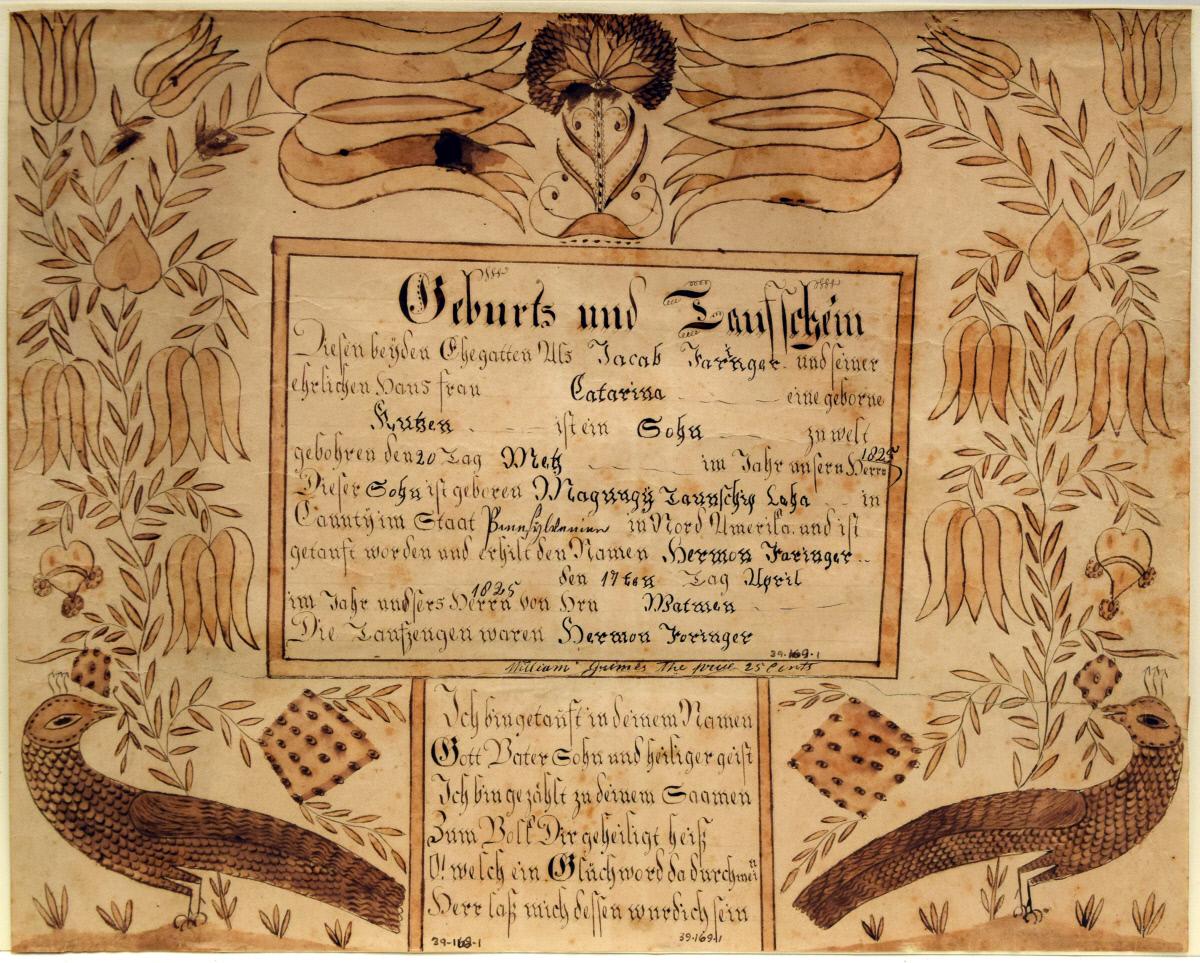 Geburts und Taufschein
Diesen beyden Ehegatten Als Jacob Faringer und seiner
ehrlichen Hausfrau Catarina eine geborne
ist ein Sohn zu welt
gebohren den 20 Tag Metz im Jahr unsern Herrn 1825
Dieser Sohn ist geboren Magungÿ Taunschip Leha in
Cauntÿ im Staat Pennsylvanien in Nord Amerika und ist
getauft worden und erhilt den Namen Hermon Faringer
den 17ten Tag April
im Jahr undsers Herrn 1825 von Hrn Watmen
Die Taufzeugen waren Hermon Foringer
39-169-1
William Grimes the price 25 Cents
Ich bin getauft in deinem Namen
Gott Vater Sohn und heiliger geist
Ich bin gezählt zu deinem Saamen
Zum Volk Dir geheiligt heiß
O! welch ein Glück word da durch mein
Herr laß mich dessen wurdich sein
39-169-1 39-169-1